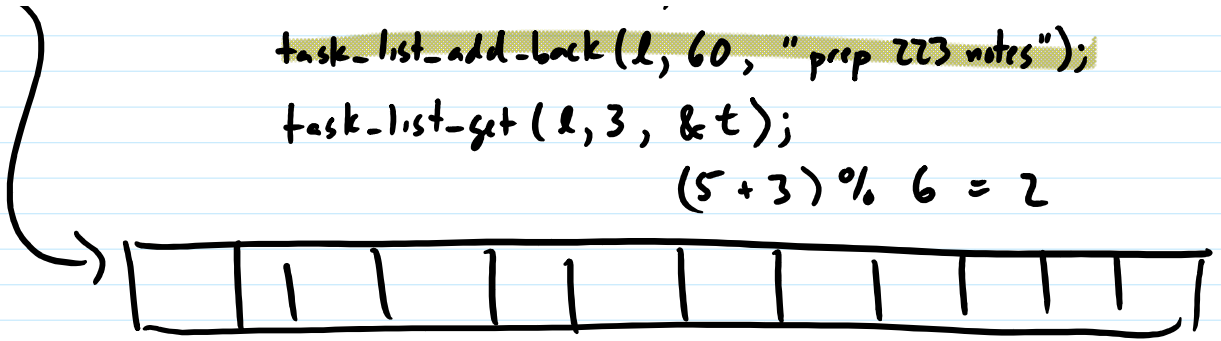 task_list_add_back(l, 60, "prep 223 notes");
task_list_get(l, 3, &t);
(5 + 3) % 6 = 2